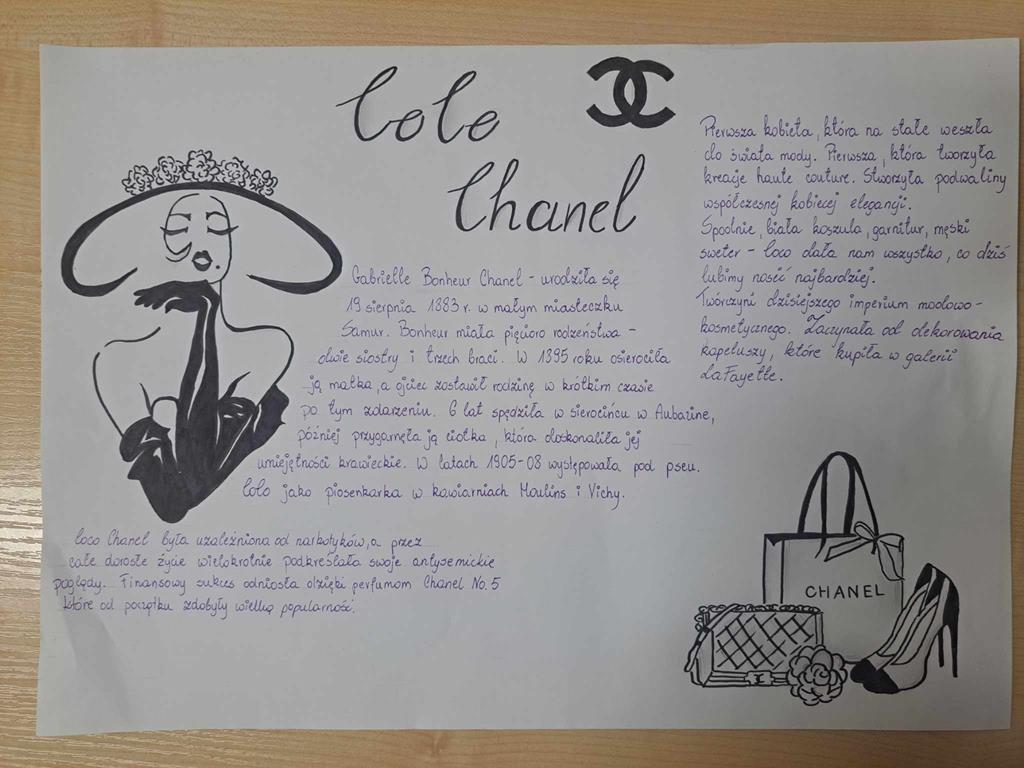 Coco
Chanel
Gabrielle Bonheur Chanel - urodziła się
19 sierpnia 1883 r. w małym miasteczku
Samur. Bonheur miała pięcioro rodzeństwa -
dwie siostry i trzech braci. W 1895 roku osierociła
ją matka, a ojciec zostawił rodzinę w krótkim czasie
po tym zdarzeniu. 6 lat spędziła w sierocińcu w Aubazine,
później przygarnęła ją ciotka, która doskonaliła jej
umiejętności krawieckie. W latach 1905-08 występowała pod pseu.
Coco jako piosenkarka w kawiarniach Moulins i Vichy.
Coco Chanel była uzależniona od narkotyków, a przez
całe dorosłe życie wielokrotnie podkreślała swoje antysemickie
poglądy. Finansowy sukces odniosła dzięki perfumom Chanel No. 5
które od początku zdobyły wielką popularność.
Pierwsza kobieta, która na stałe weszła
do świata mody. Pierwsza, która tworzyła
kreacje haute couture. Stworzyła podwaliny
współczesnej kobiecej elegancji.
Spodnie, biała koszula, garnitur, męski
sweter - Coco dała nam wszystko, co dziś
lubimy nosić najbardziej.
Twórczyni dzisiejszego imperium modowo-
kosmetycznego. Zaczynała od dekorowania
kapeluszy, które kupiła w galerii
LaFayette.
CHANEL